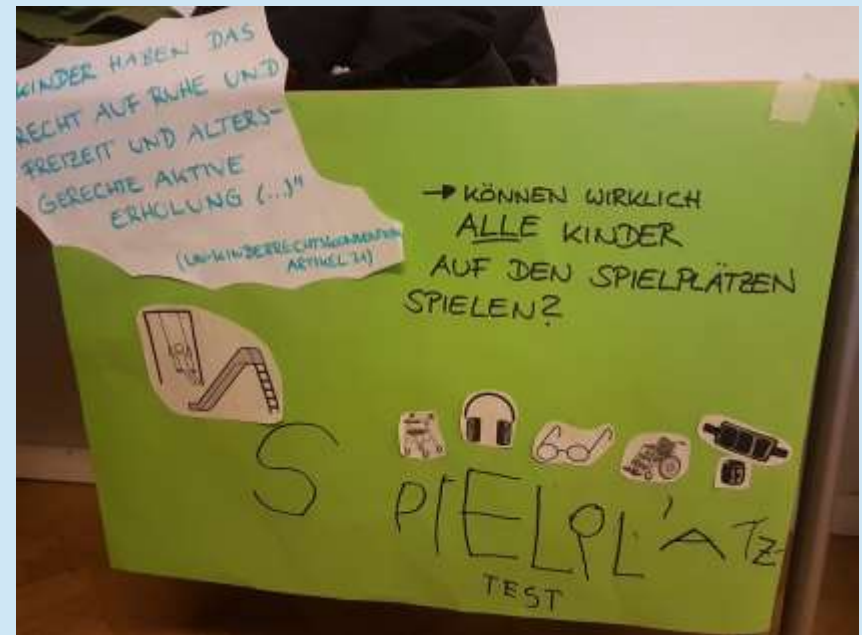 KINDER HABEN DAS
RECHT AUF RUHE UND
FREIZEIT UND ALTERS-
GERECHTE AKTIVE
ERHOLUNG (...)"
(UN-KINDERRECHTSKONVENTION
ARTIKEL 31)
→ KÖNNEN WIRKLICH
ALLE KINDER
AUF DEN SPIELPLÄTZEN
SPIELEN?
SPIELPLATZ
TEST